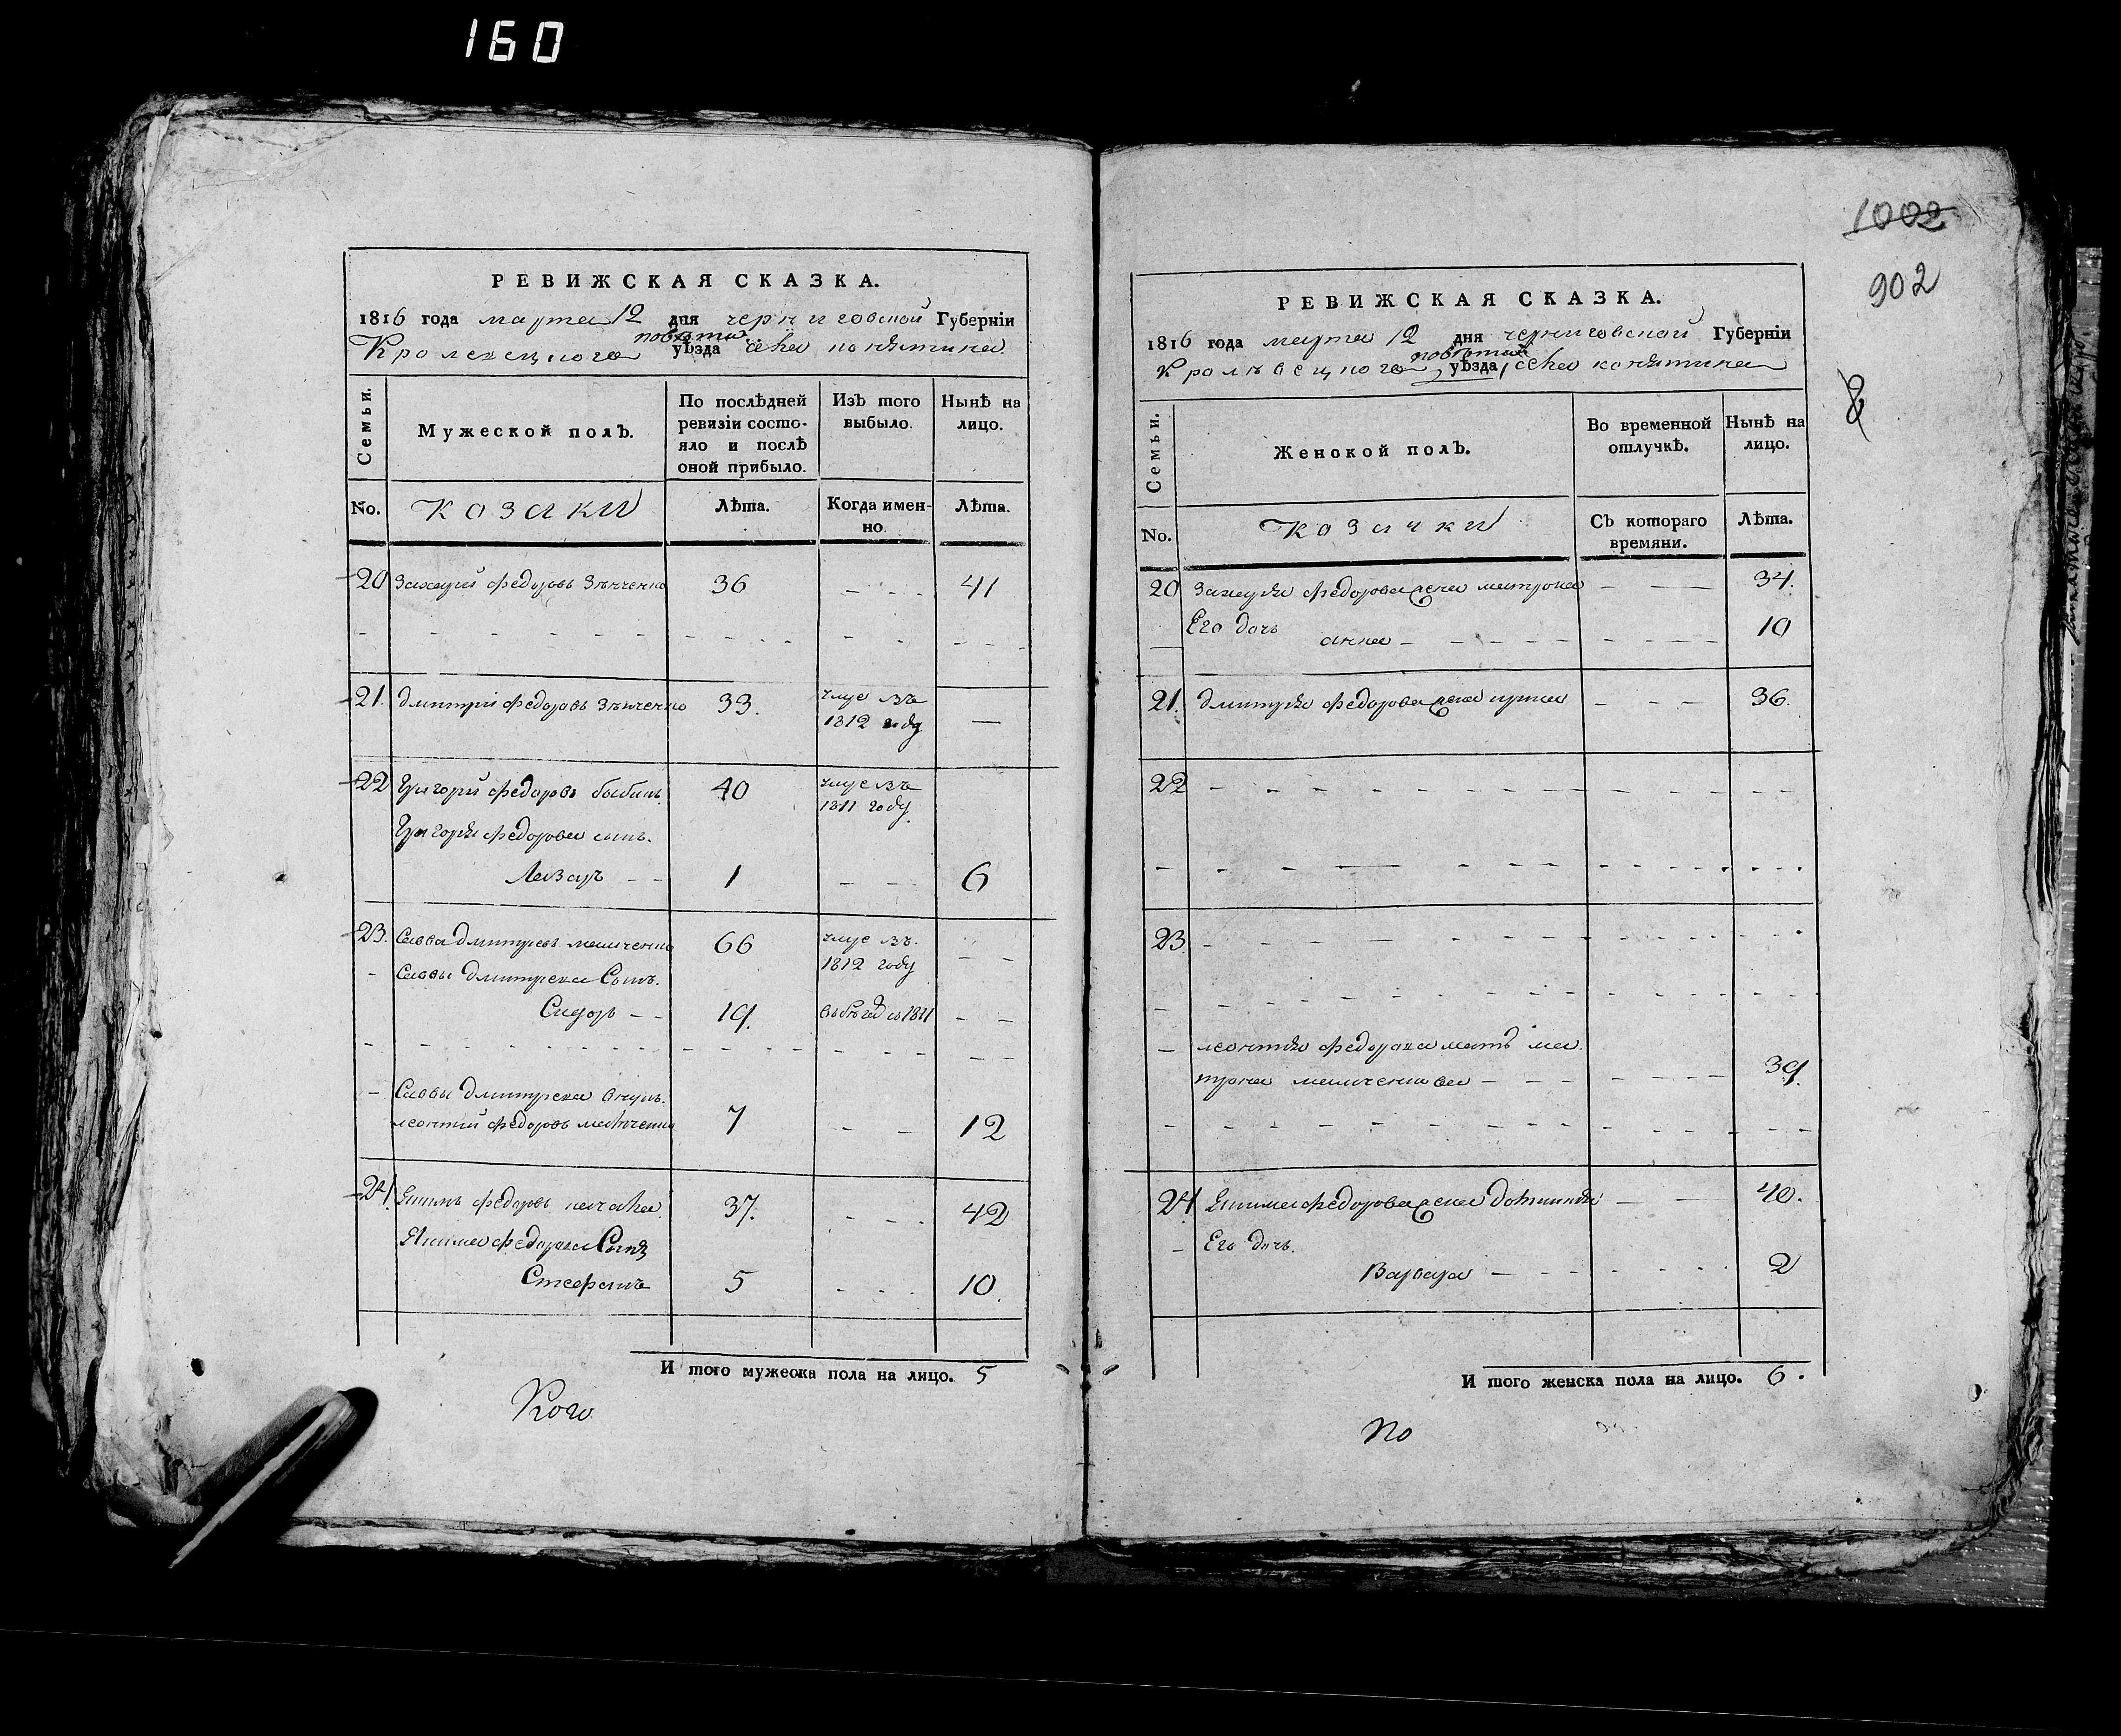 160
РЕВИЖСКАЯ СКАЗКА.
1816 года марта 12 дня черниговской Губерніи
повѣта
Кролевецкого уѣзда села конятина
Семьи.
Мужеской полъ.
По послѣдней ревизіи состо-
яло и послѣ
оной прибыло.
Изъ того
выбыло.
Нынѣ на
лицо.
No. козаки Лѣта. Когда имен-
но Лѣта.
20 Захарий Федоровъ 36 41
21. Дмитрій Федоровъ 33. 1812 году —
22 Григорій Федоровъ 40 1811 году
Григорія Федорова сынъ.
Лазарь 1 6
23. Савва Дмитріевъ 66 1812 году
Саввы Дмитриева Сынъ.
Сидоръ 19. 1811
Саввы Дмитриева внукъ.
леонтий Федоровъ 7 12
24 Якимъ Федоровъ 37. 42
Якима Федорова Сынъ
Стефанъ 5 10.
И того мужеска пола на лицо. 5
Кого
1002
902
РЕВИЖСКАЯ СКАЗКА.
1816 года марта 12 дня черниговской Губерніи
повѣта
Кролѣвецкого уѣзда села конятина
Семьи.
Женской полъ.
Во временной
отлучкѣ.
Нынѣ на
лицо.
No. Козачки Съ котораго
времяни. Лѣта.
20 Захария Федорова жена матрона 34.
Его дочь
анна 10
21. Дмитрія Федорова жена ирина 36.
22
23
леонтія Федорова мать ма
трона 39.
24 Якима Федорова жена 40.
Его дочь.
Варвара 2
И того женска пола на лицо. 6.
по